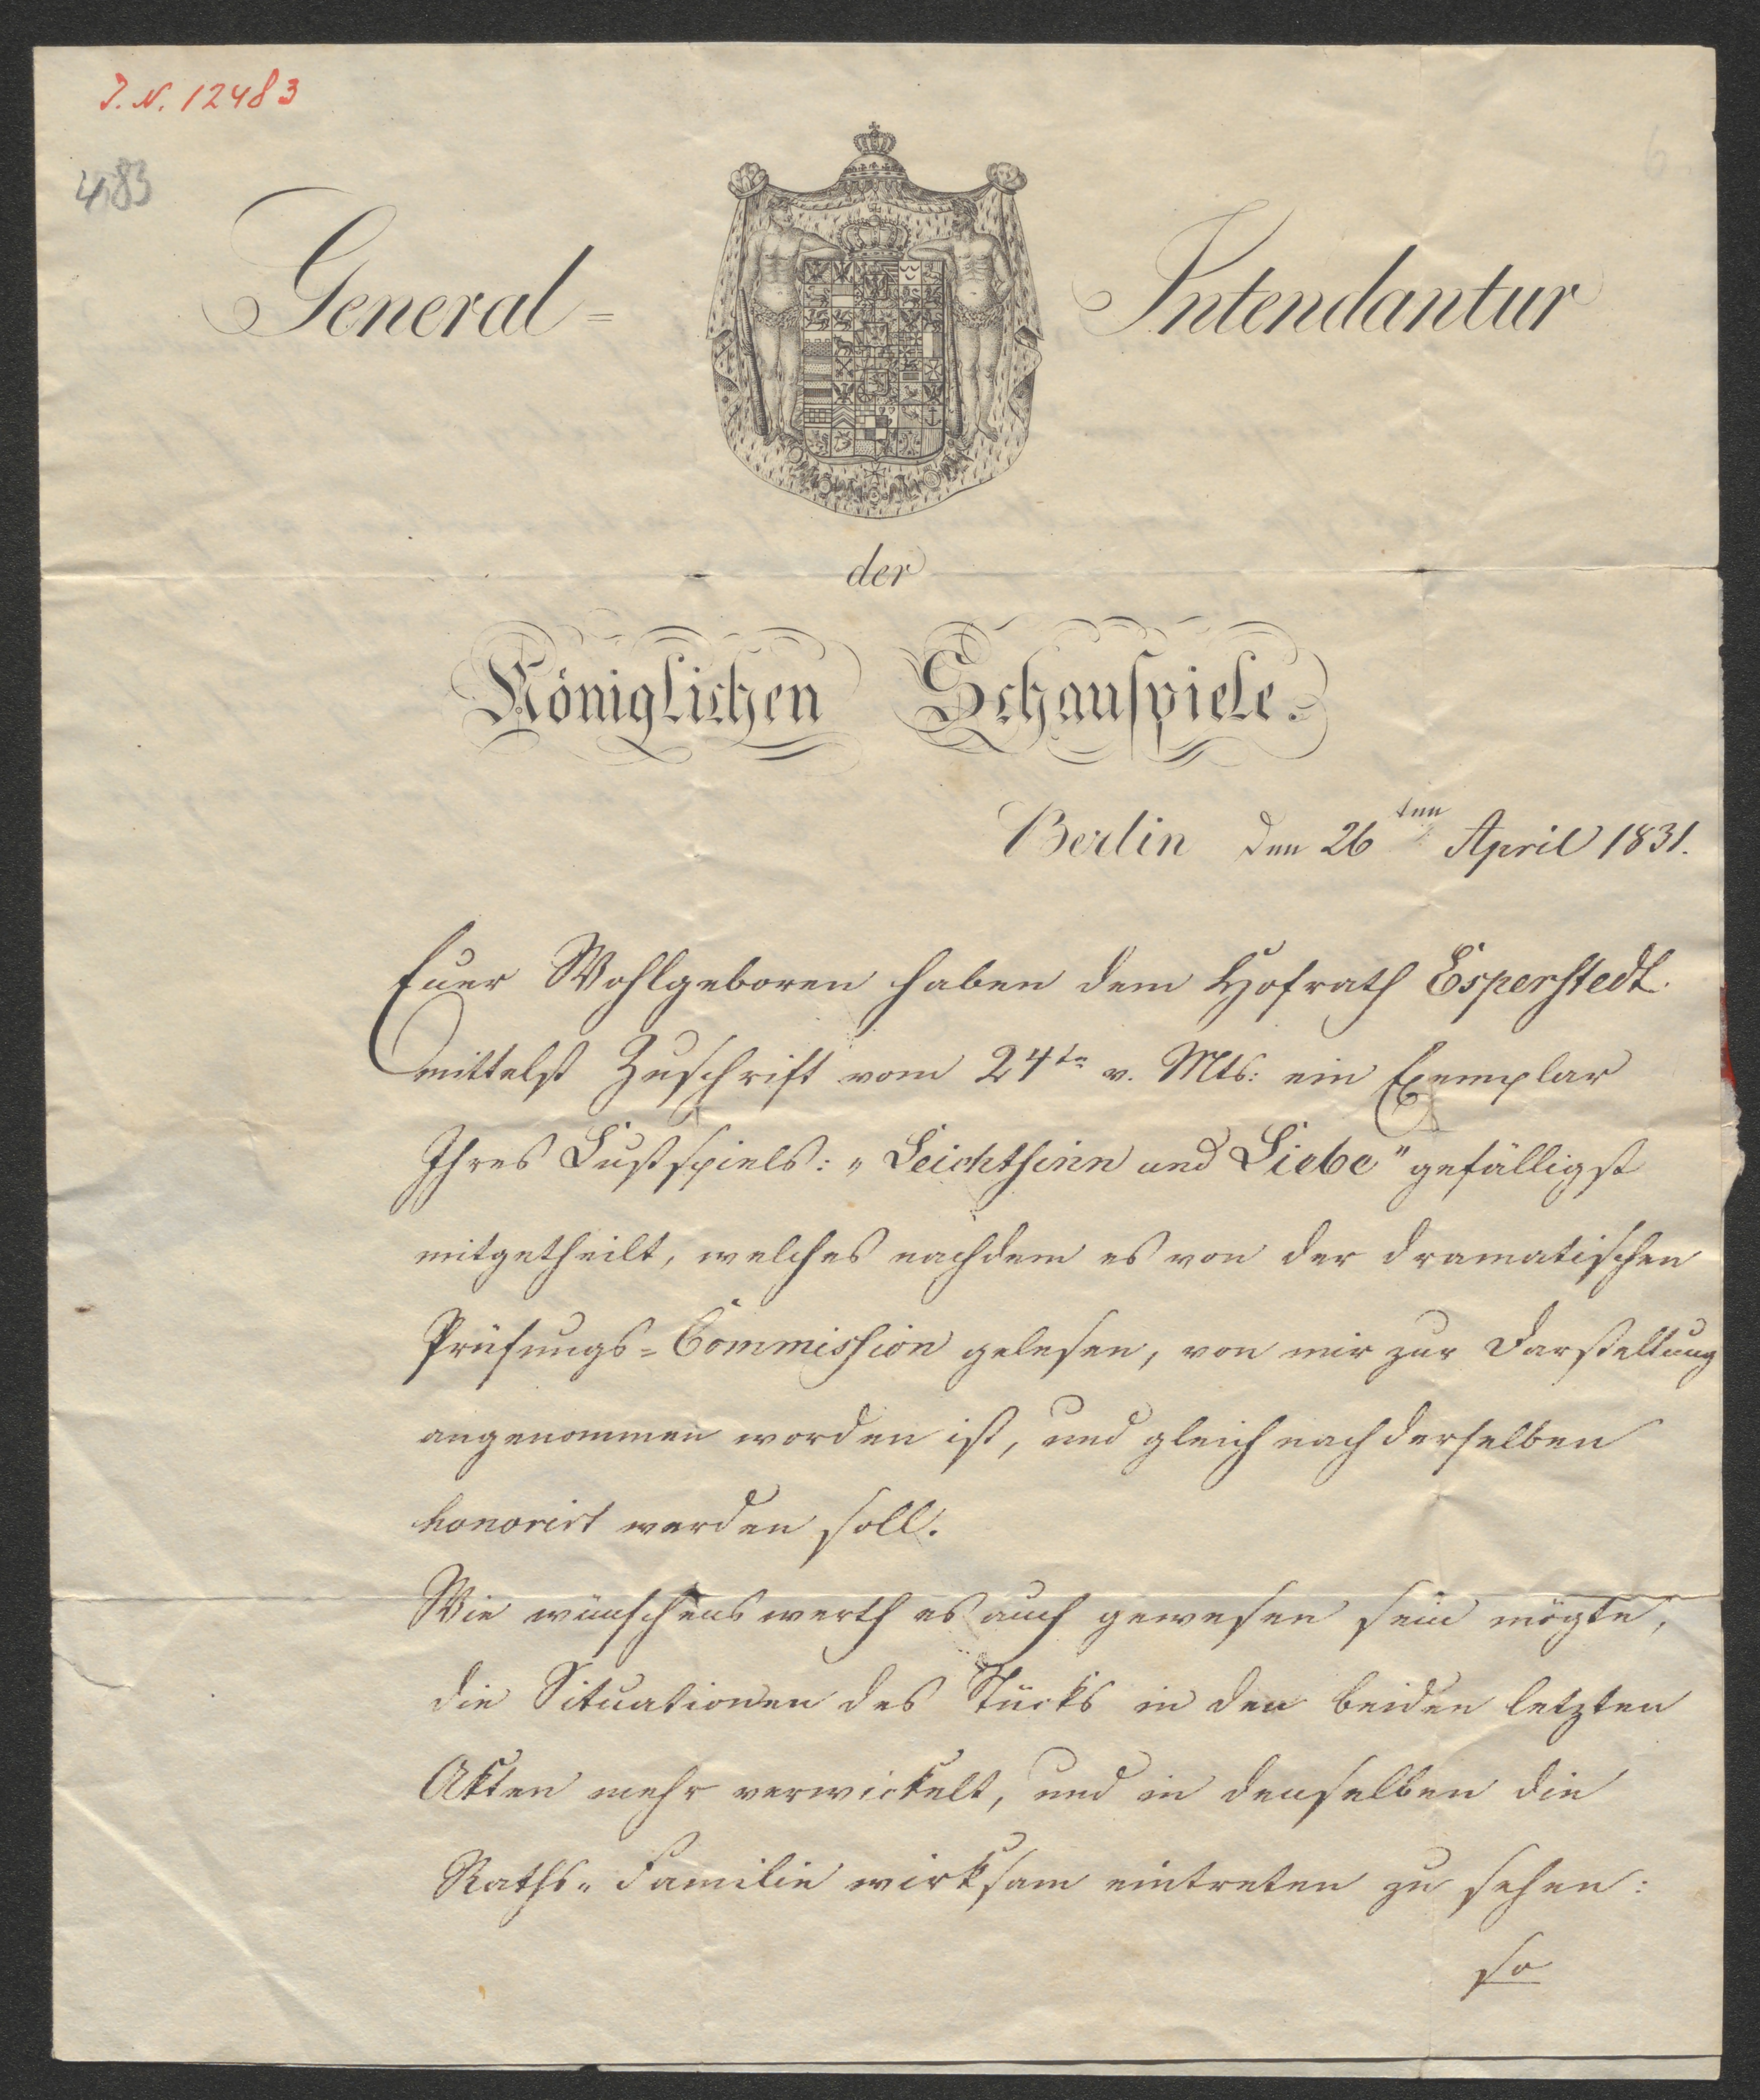 J. N. 12483
483
6
General = Intendantur
der
Königlichen Schauspiele.
Berlin den 26ten April 1831.
Euer Wohlgeboren haben dem Hofrath Esperstedt
mittelst Zuschrift vom 24ten v. Mts: ein Exemplar
Ihres Lustspiels: „Leichtsinn und Liebe" gefälligst
mitgetheilt, welches nachdem es von der dramatischen
Prüfungs=Commission gelesen, von mir zur Darstellung
angenommen worden ist, und gleich nach derselben
honorirt werden soll.
Wie wünschenswerth es auch gewesen sein mögte,
die Situationen des Stücks in den beiden letzten
Akten mehr verwickelt, und in denselben die
Raths=Familie wirksam eintreten zu sehen:
so